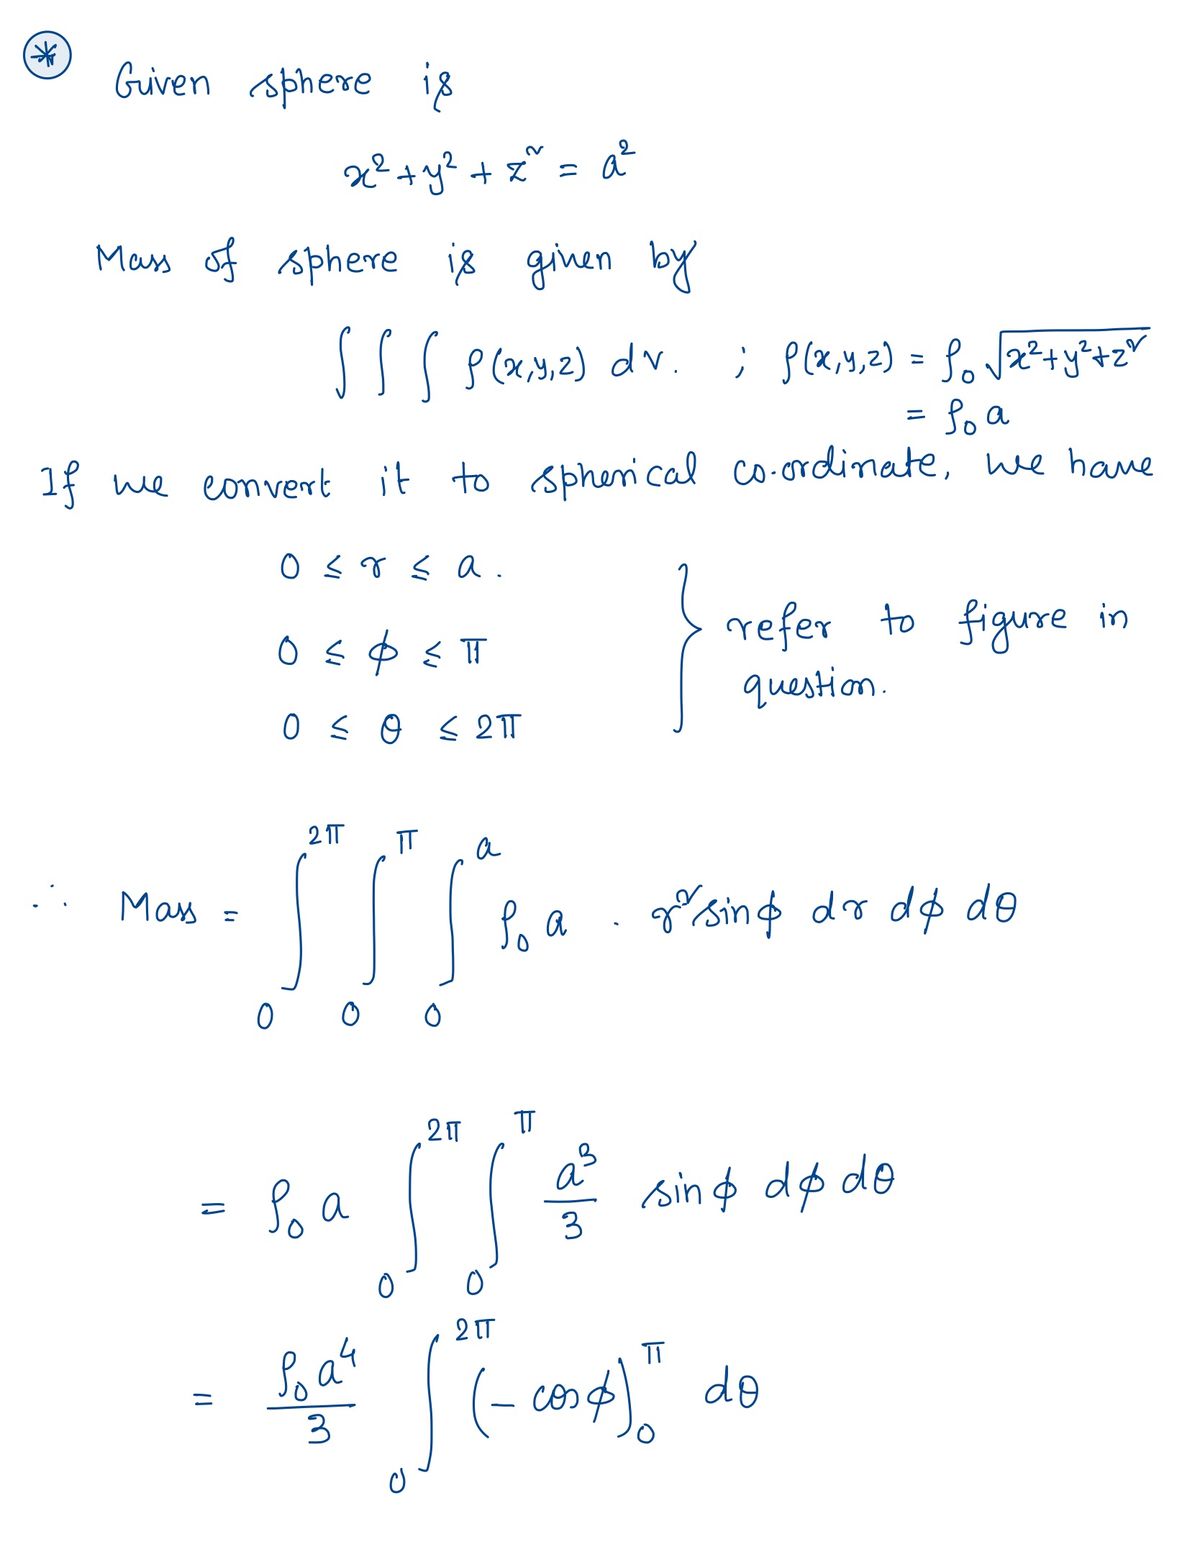 * Given sphere is
x² + y² + z² = a²
Mass of sphere is given by
∫∫∫ ρ(x,y,z) dv. ; ρ(x,y,z) = ρ₀ √(x²+y²+z²)
= ρ₀ a
If we convert it to spherical co-ordinate, we have
0 ≤ r ≤ a.
0 ≤ ϕ ≤ π
0 ≤ θ ≤ 2π
} refer to figure in
question.
∴ Mass = ∫₀^2π ∫₀^π ∫₀^a ρ₀ a . r² sinϕ dr dϕ dθ
= ρ₀ a ∫₀^2π ∫₀^π a³/3 sinϕ dϕ dθ
= ρ₀ a⁴/3 ∫₀^2π (- cosϕ)₀^π dθ